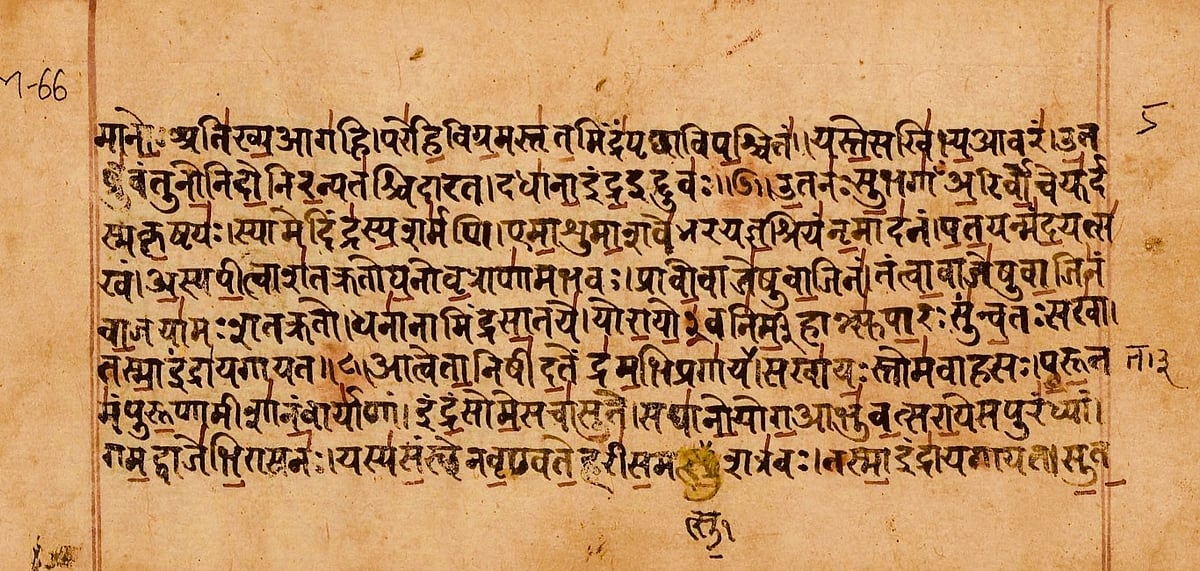 M-66
5
मानो॒अति॑ख्य॒आग॑हि।परे॑हि॒विग्र॒मस्तृ॑त॒मिंद्रं॑पृछाविप॒श्चितं॑।यस्ते॒सखि॑भ्य॒आवरं॑।उ॒त
ब्रु॑वंतुनो॒निदो॒निर॒न्यत॑श्चिदारत।दधा॑ना॒इंद्र॒इद्दुवः॑॥७॥उ॒तनः॑सु॒भगाँ॑अ॒रिर्वो॒चेयु॑र्द
स्मकृ॒ष्टयः॑।स्यामेदिंद्र॑स्य॒शर्म॑णि।एमा॒शुमा॒शवे॑भरयज्ञ॒श्रियं॑नृ॒माद॑नं।प॒त॒यन्मं॑द॒यत्स
खं।अ॒स्यपी॒त्वाश॑तक्रतोघ॒नोवृ॒त्राणा॑मभवः।प्रावो॒वाजे॑षुवा॒जिनं॑।तंत्वा॒वाजे॑षुवा॒जिनं॑
वा॒जया॑मःशतक्रतो।धना॑नामिंद्रसा॒तये॑।योरा॒यो॒३॒॑वनि॑र्म॒हान्सु॑पा॒रःसु॑न्व॒तःसखा॑।
तस्मा॒इंद्रा॑यगायत॥८॥आत्वेता॒निषी॑द॒तेंद्र॑म॒भिप्रगा॑यत।सखा॑यः॒स्तोम॑वाहसः।पु॒रू॒त
मं॑पुरू॒णामीशा॑नं॒वार्या॑णां।इंद्रं॒सोमे॒सचा॑सु॒ते।सघा॑नो॒योग॒आभु॑व॒त्सरा॒येसपुरं॑ध्यां।
गम॒द्वाजे॑भि॒रासनः॑।यस्य॑सं॒स्थेनवृ॒ण्वते॒हरी॑स॒मत्सु॒शत्र॑वः।तस्मा॒इंद्रा॑यगायत।सु॒त
त्सु॒